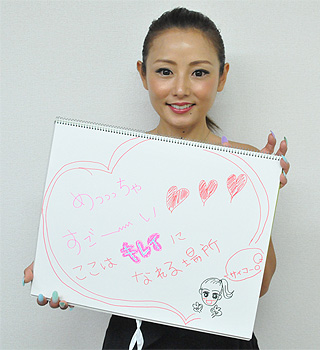 めっっっちゃ
すごーーい♥♥♥
ここはキレイに
なれる場所
サイコー